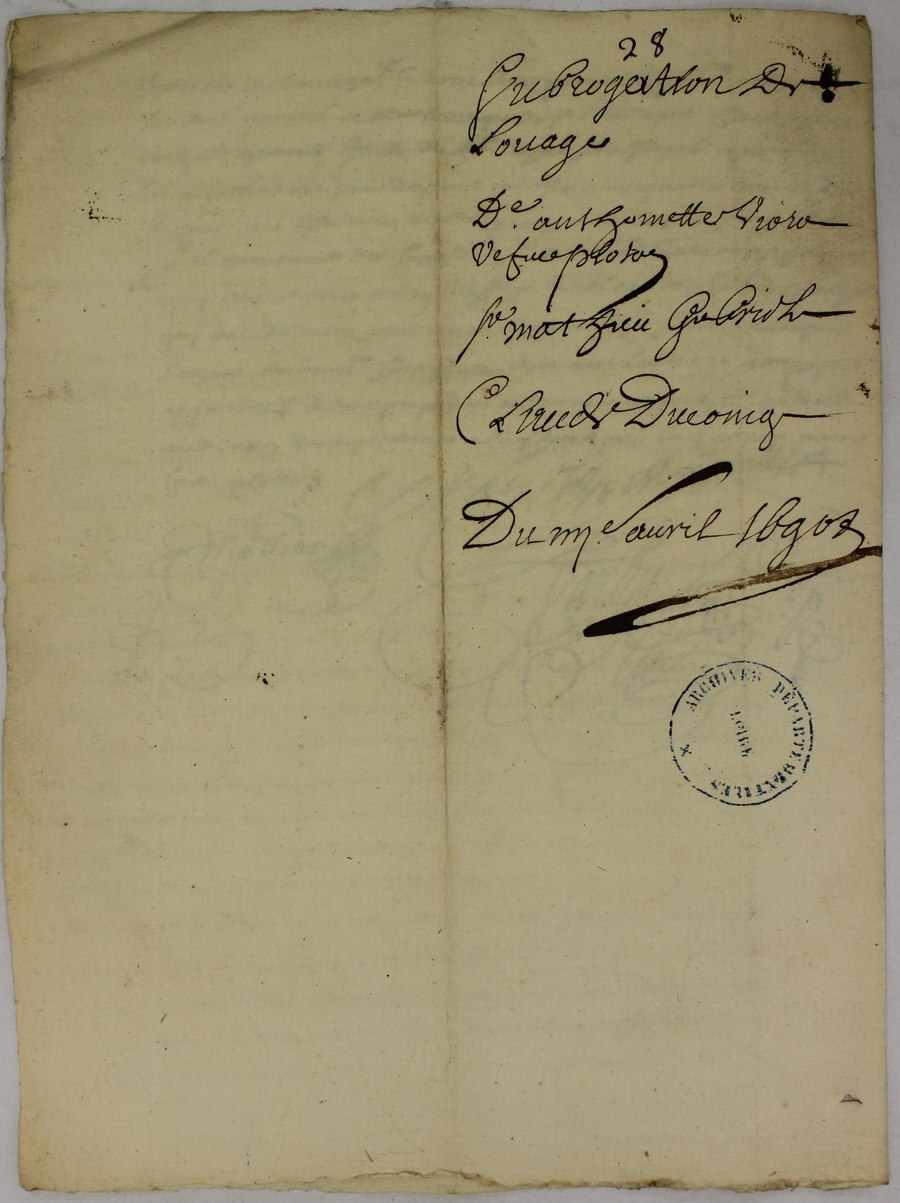 28
Subrogation De
Louage
De. anthomette Viora
Vefue plotoy
sr. mathieu Gabriel
Claude Ducoing
Du mye avril 1690
ARCHIVES DÉPARTEMENTALES
LOIRE